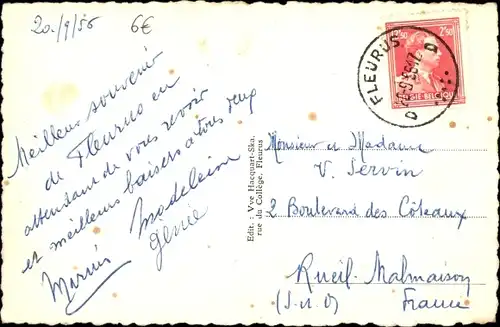 20/9/56 6€
Meilleur souvenir
de Fleurus en
attendant de vous revoir
et meilleurs baisers à tous deux
Madeleine
Génie
Edit. : Vve Hacquart-Ska,
rue du Collège, Fleurus
FLEURUS
2F50 2F50
BELGIQUE
Monsieur et Madame
V. Servin
2 Boulevard des Côteaux
Rueil-Malmaison
(S. et O)
France